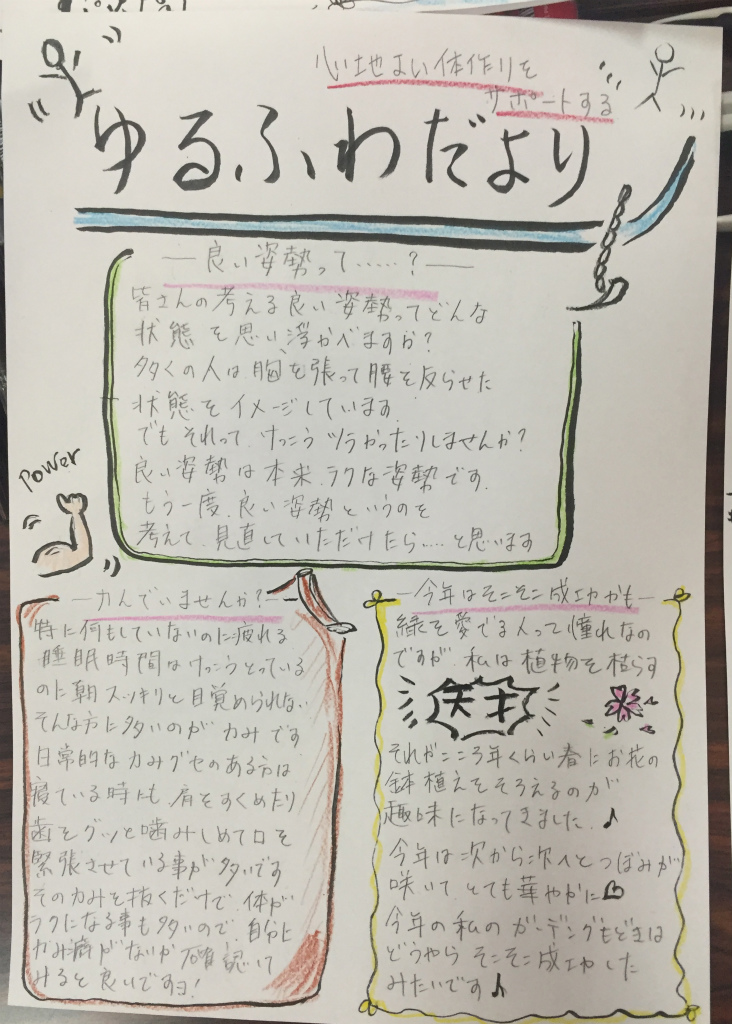 心地よい体作りを
サポートする
ゆるふわだより
良い姿勢って……?
皆さんの考える良い姿勢ってどんな
状態を思い浮かべますか?
多くの人は、胸を張って腰を反らせた
状態をイメージしています
でもそれって、けっこうツラかったりしませんか?
良い姿勢は本来、ラクな姿勢です。
もう一度、良い姿勢というのを
考えて、見直していただけたら……と思います
Power
力んでいませんか?
特に何もしていないのに疲れる
睡眠時間はけっこうとっている
のに朝スッキリと目覚められない
そんな方に多いのが力みです
日常的な力みグセのある方は
寝ている時にも肩をすくめたり
歯をグッと噛みしめて口を
緊張させている事が多いです
その力みを抜くだけで、体が
ラクになる事も多いので、自分に
力み癖がないか確認して
みると良いですョ!
今年はそこそこ成功かも
緑を愛でる人って憧れなの
ですが、私は植物を枯らす
天才
それがここ3年くらい春にお花の
鉢植えをそろえるのが
趣味になってきました♪
今年は次から次へとつぼみが
咲いて、とても華やかに♡
今年の私のガーデングもどきは
どうやらそこそこ成功した
みたいです♪